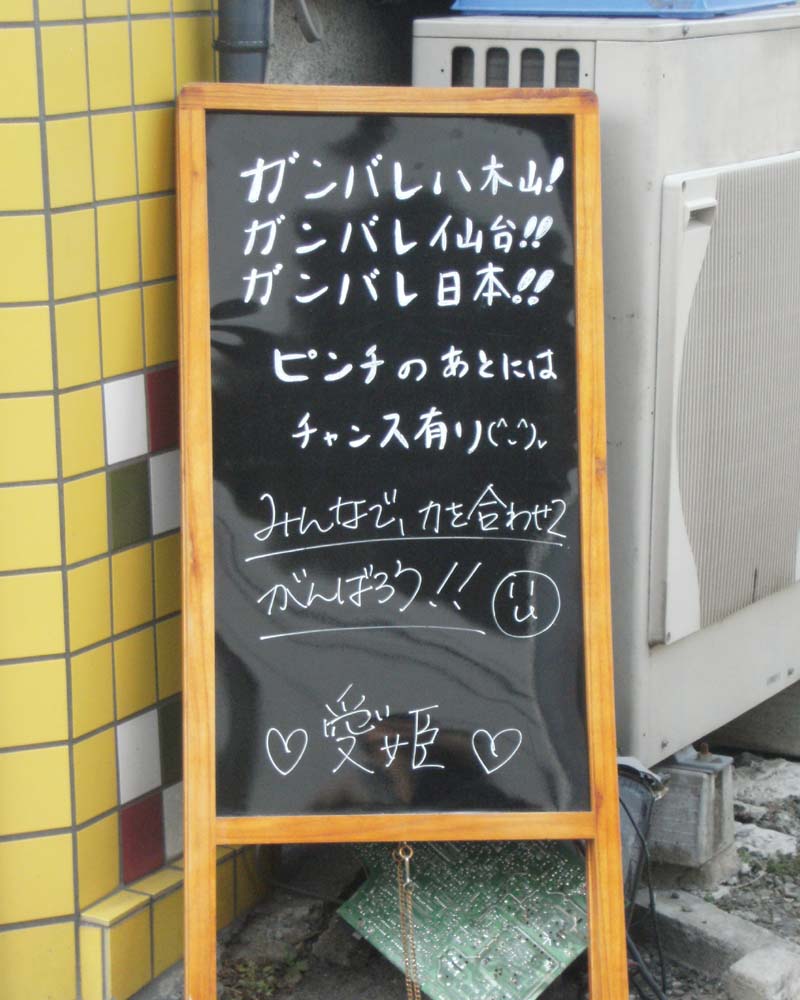 ガンバレ八木山!
ガンバレ仙台!!
ガンバレ日本!!
ピンチのあとには
チャンス有り(^-^)v
みんなで、力を合わせて
がんばろう!!
♡愛姫♡